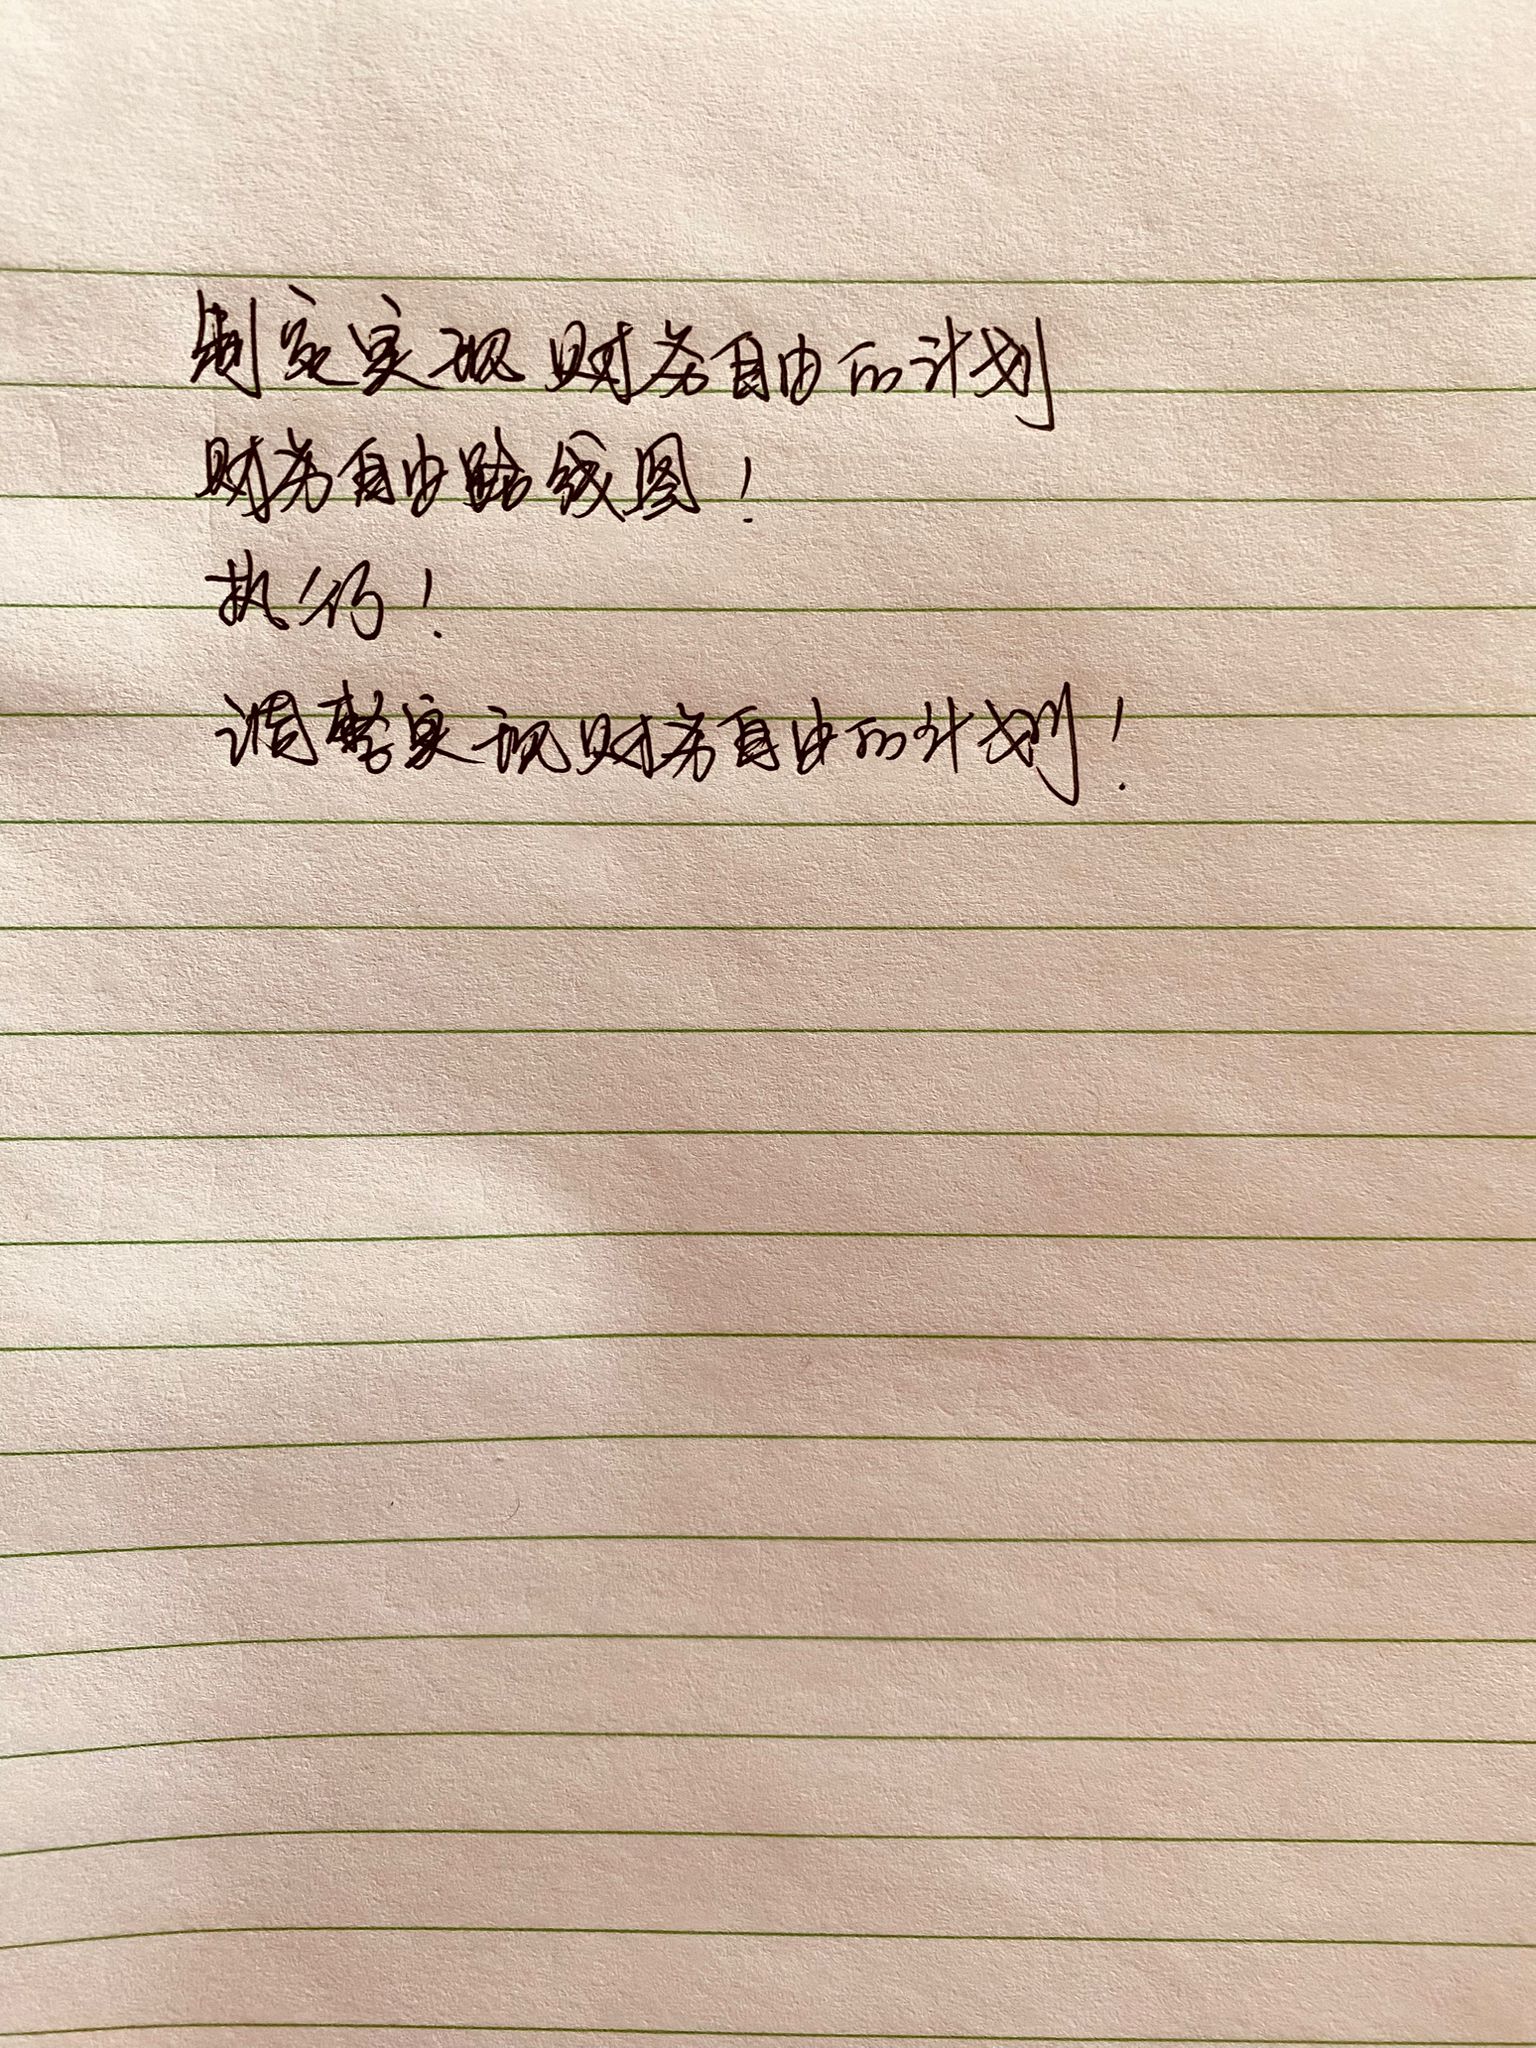 制定实现财务自由的计划
财务自由路线图！
执行！
调整实现财务自由的计划！